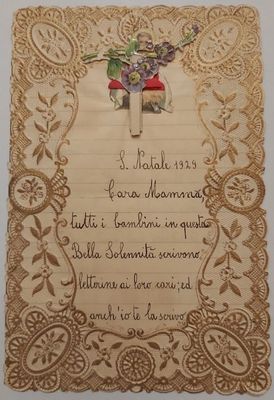 S. Natale 1929
Cara Mamma,
tutti i bambini in questa
Bella Solennità scrivono,
letterine ai loro cari; ed
anch'io te la scrivo